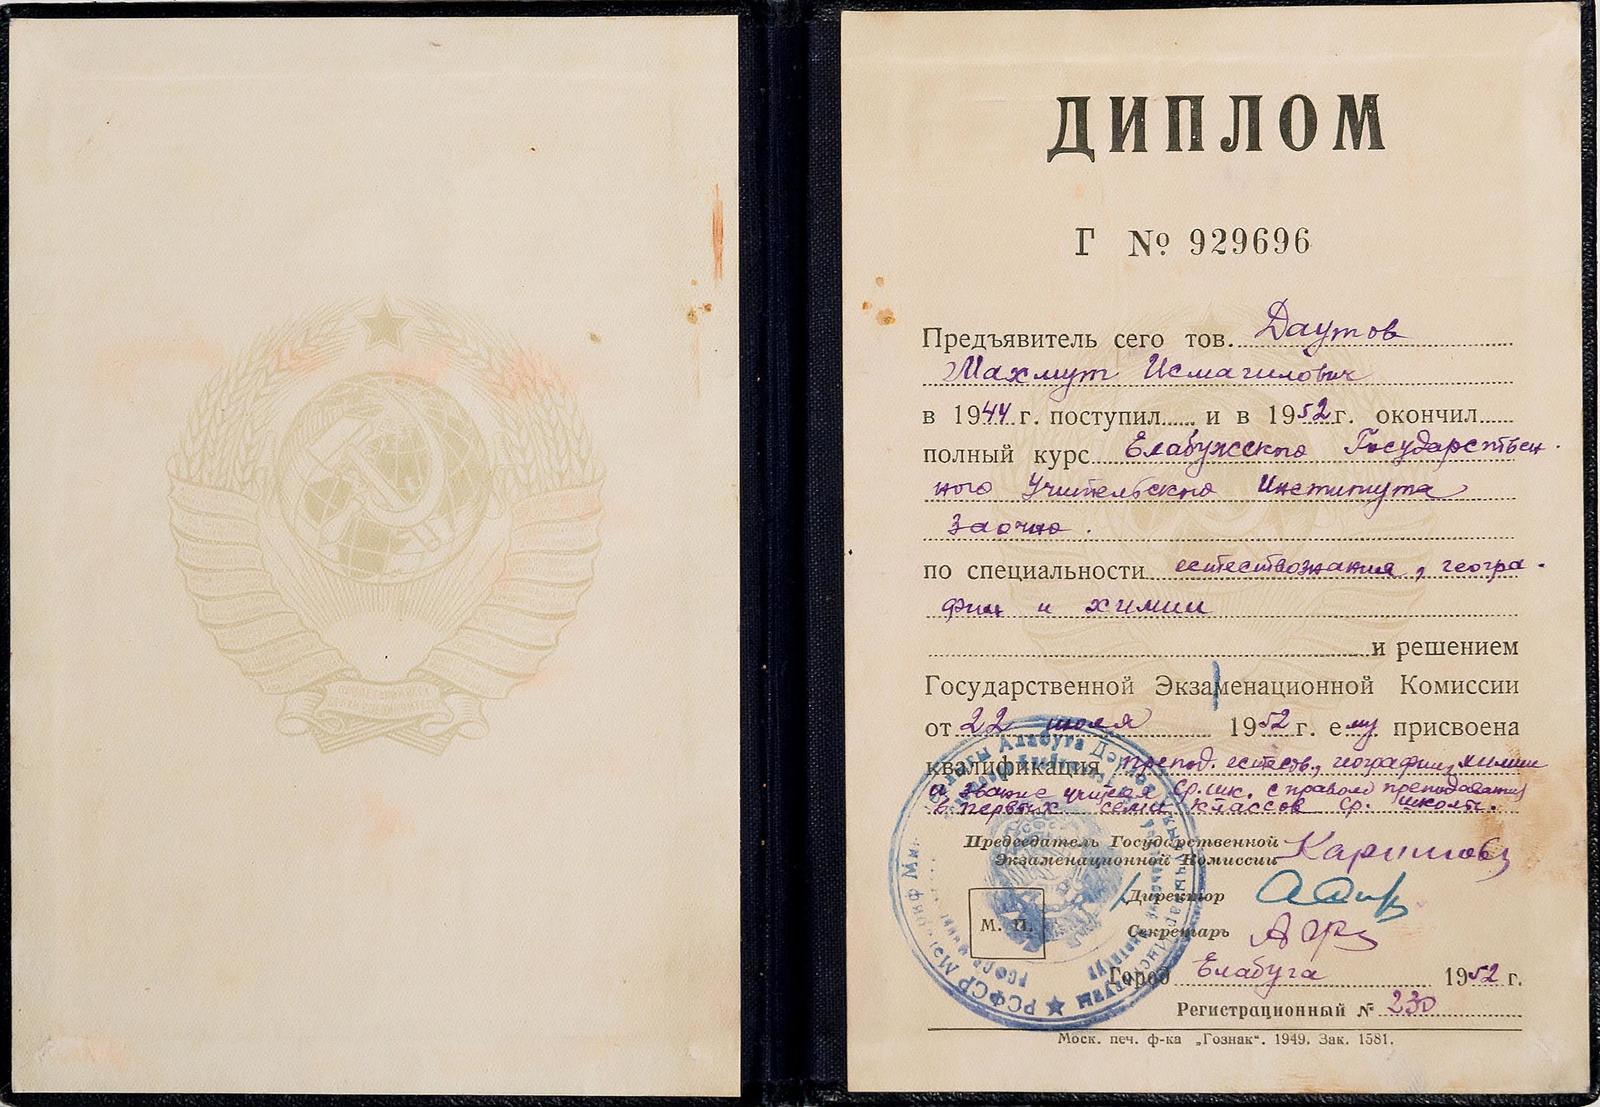 ДИПЛОМ
Г № 929696
Предъявитель сего тов. Даутов
Махмут Исмагилович
в 1944 г. поступил и в 1952 г. окончил
полный курс Елабужского Государствен-
ного Учительского Института
Заочно.
по специальности естествознания, геогра-
фии и химии
и решением
Государственной Экзаменационной Комиссии
от 22 июля 1952 г. ему присвоена
квалификация препод. естеств., географии, химии
и звание учителя ср. шк. с правом преподавания
в первых семи классов ср. школы.
Председатель Государственной
Экзаменационной Комиссии
Директор
Секретарь
М. П.
Город Елабуга 1952 г.
Регистрационный № 230
Моск. печ. ф-ка „Гознак“. 1949. Зак. 1581.